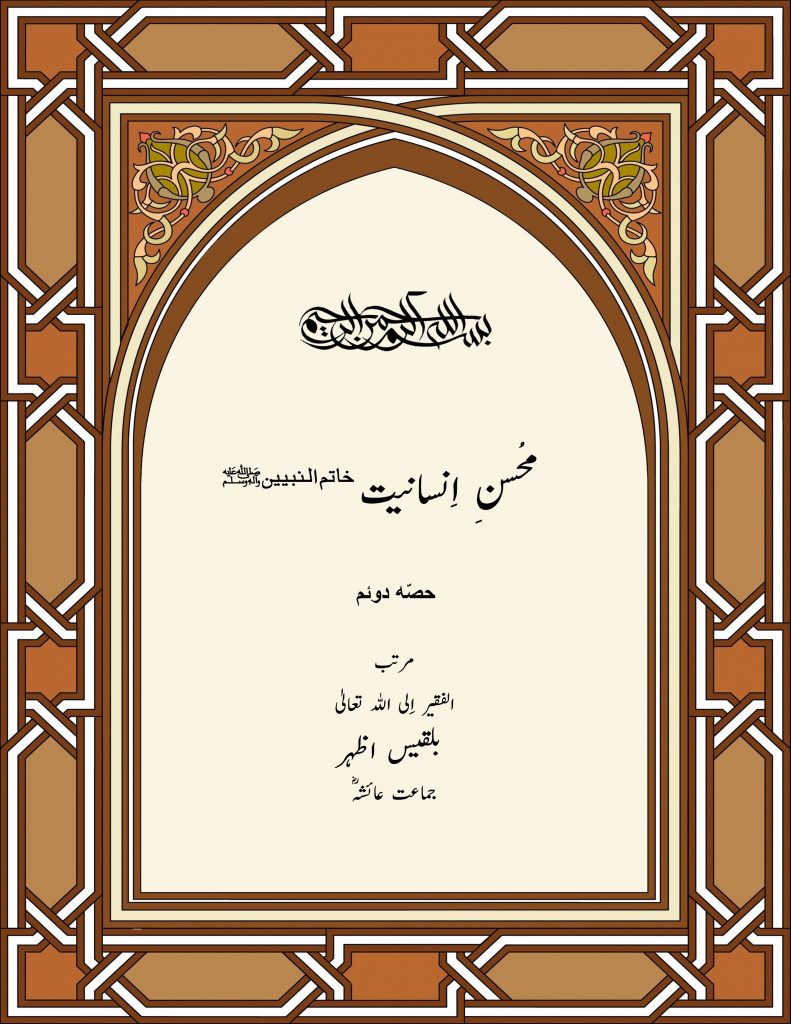 بسم الله الرحمن الرحيم
مُحسنِ اِنسانیت خاتم النبیین صلی اللہ علیہ وآلہ وسلم
حصّہ دوئم
مرتب
الفقیر اِلی اللہ تعالیٰ
بلقیس اظہر
جماعت عائشہؓ